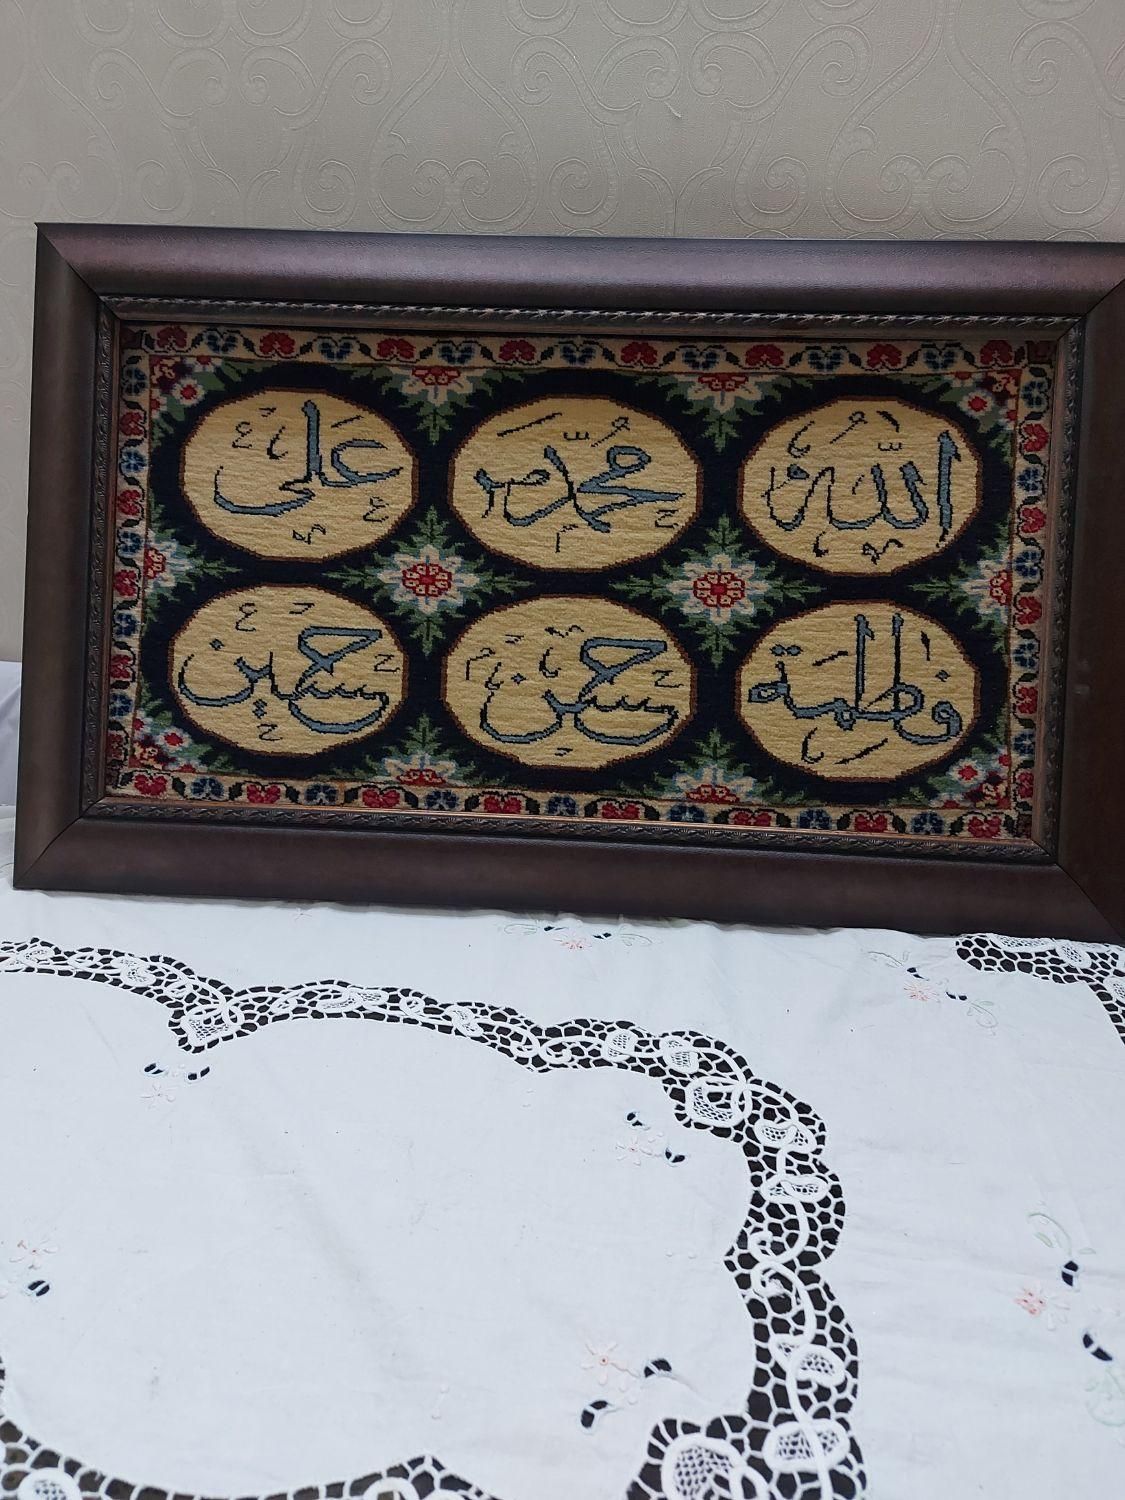 الله محمد علی
فاطمة حسن حسین